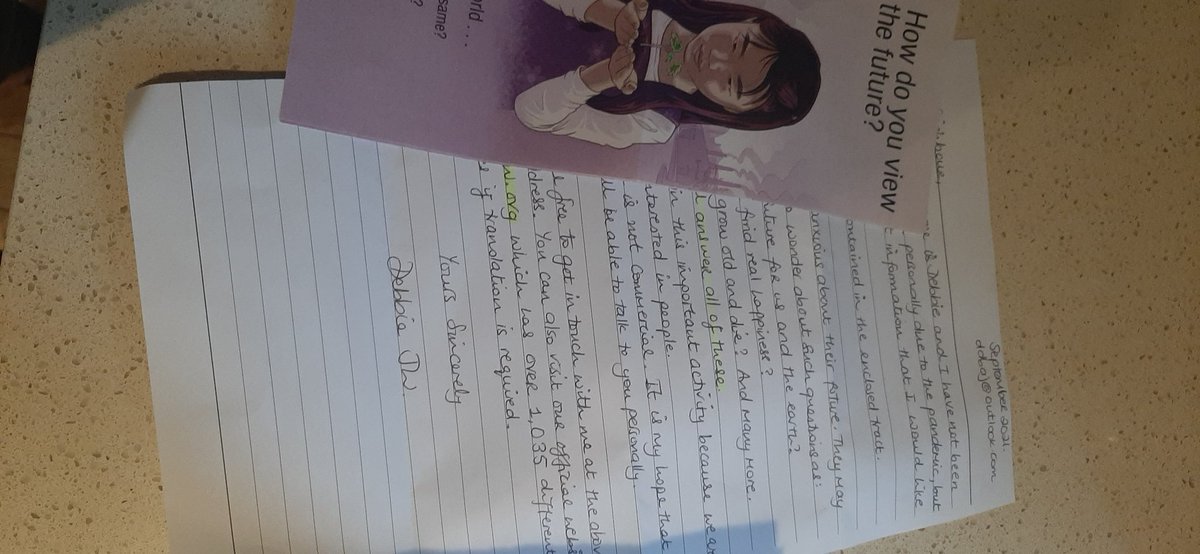 How do you view
the future?
rld ...
same?
?
September 2021
is Debbie and I have not been
personally due to the pandemic, but
information that I would like
contained in the enclosed tract.
anxious about their future. They may
wonder about such questions as:
future for us and the earth?
find real happiness?
grow old and die? And many more.
answer all of these.
in this important activity because we ar
nterested in people.
is not commercial. It is my hope that
ll be able to talk to you personally
free to get in touch with me at the abov
dress. You can also visit our official webs
w.org which has over 1,035 different
if translation is required.
Yours Sincerely
Debbie